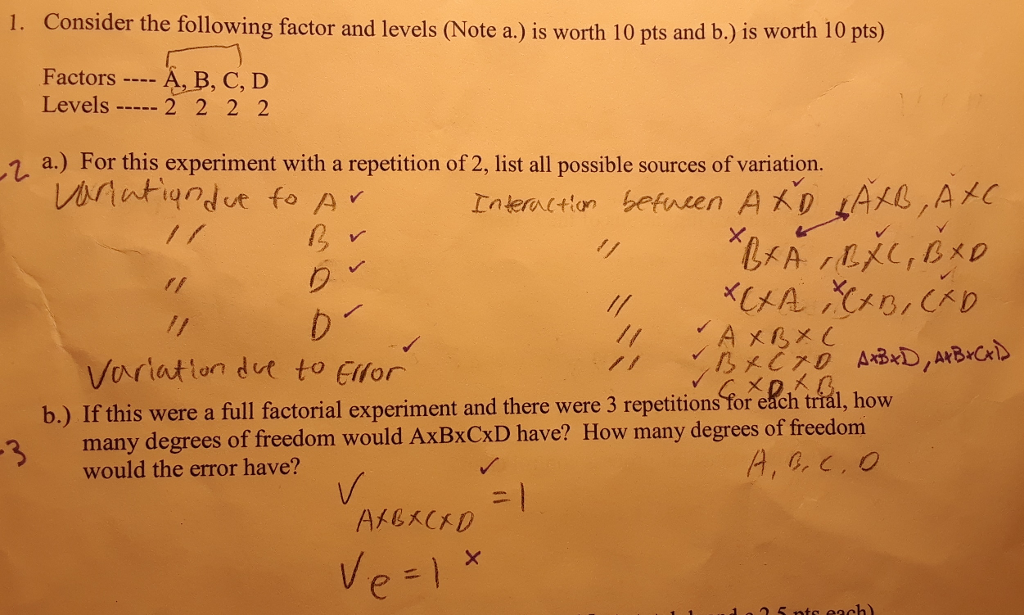 1. Consider the following factor and levels (Note a.) is worth 10 pts and b.) is worth 10 pts)
Factors ---- A, B, C, D
Levels ----- 2 2 2 2
-2 a.) For this experiment with a repetition of 2, list all possible sources of variation.
Variation due to A ✓ Interaction between A X D, AXB, AXC
" B ✓ " × BXA, BXC, BXD
" D ✓ " × CXA, × CXB, CXD
" D ✓ " ✓ A X B X C
Variation due to Error ✓ " ✓ B X C X D AxBxD, AxBxCxD
✓ C X D X B
b.) If this were a full factorial experiment and there were 3 repetitions for each trial, how
-3 many degrees of freedom would AxBxCxD have? How many degrees of freedom
would the error have? A, B, C, D
V AXBXCXD = 1 ✓
Ve = 1 ×